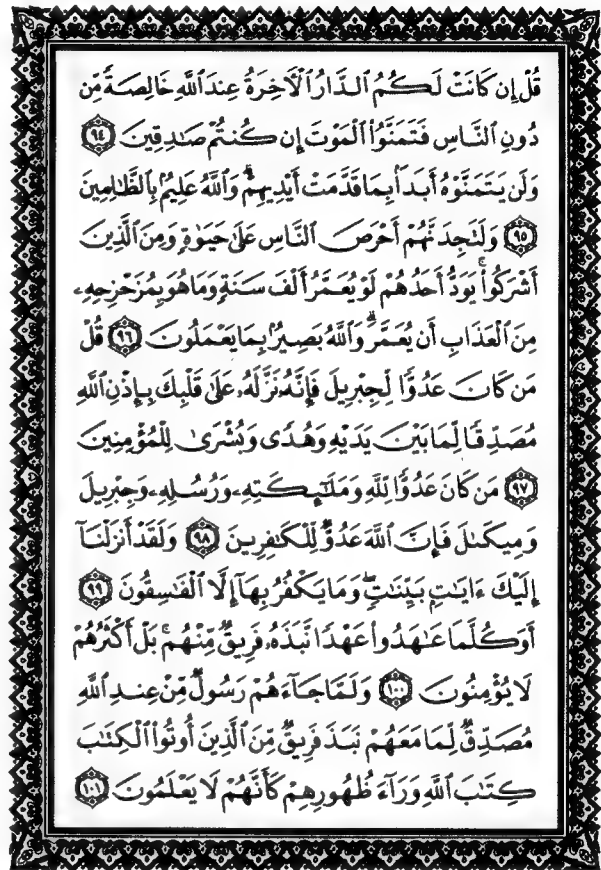 قُلْ إِن كَانَتْ لَكُمُ ٱلدَّارُ ٱلْأَخِرَةُ عِندَ ٱللَّهِ خَالِصَةً مِّن
دُونِ ٱلنَّاسِ فَتَمَنَّوُا۟ ٱلْمَوْتَ إِن كُنتُمْ صَـٰدِقِينَ ٩٤
وَلَن يَتَمَنَّوْهُ أَبَدًۢا بِمَا قَدَّمَتْ أَيْدِيهِمْ ۗ وَٱللَّهُ عَلِيمٌۢ بِٱلظَّـٰلِمِينَ
٩٥ وَلَتَجِدَنَّهُمْ أَحْرَصَ ٱلنَّاسِ عَلَىٰ حَيَوٰةٍ وَمِنَ ٱلَّذِينَ
أَشْرَكُوا۟ ۚ يَوَدُّ أَحَدُهُمْ لَوْ يُعَمَّرُ أَلْفَ سَنَةٍ وَمَا هُوَ بِمُزَحْزِحِهِۦ
مِنَ ٱلْعَذَابِ أَن يُعَمَّرَ ۗ وَٱللَّهُ بَصِيرٌۢ بِمَا يَعْمَلُونَ ٩٦ قُلْ
مَن كَانَ عَدُوًّا لِّجِبْرِيلَ فَإِنَّهُۥ نَزَّلَهُۥ عَلَىٰ قَلْبِكَ بِإِذْنِ ٱللَّهِ
مُصَدِّقًا لِّمَا بَيْنَ يَدَيْهِ وَهُدًى وَبُشْرَىٰ لِلْمُؤْمِنِينَ
٩٧ مَن كَانَ عَدُوًّا لِّلَّهِ وَمَلَـٰٓئِكَتِهِۦ وَرُسُلِهِۦ وَجِبْرِيلَ
وَمِيكَىٰلَ فَإِنَّ ٱللَّهَ عَدُوٌّ لِّلْكَـٰفِرِينَ ٩٨ وَلَقَدْ أَنزَلْنَآ
إِلَيْكَ ءَايَـٰتٍۭ بَيِّنَـٰتٍ ۖ وَمَا يَكْفُرُ بِهَآ إِلَّا ٱلْفَـٰسِقُونَ ٩٩
أَوَكُلَّمَا عَـٰهَدُوا۟ عَهْدًا نَّبَذَهُۥ فَرِيقٌ مِّنْهُم ۚ بَلْ أَكْثَرُهُمْ
لَا يُؤْمِنُونَ ١٠٠ وَلَمَّا جَآءَهُمْ رَسُولٌ مِّنْ عِندِ ٱللَّهِ
مُصَدِّقٌ لِّمَا مَعَهُمْ نَبَذَ فَرِيقٌ مِّنَ ٱلَّذِينَ أُوتُوا۟ ٱلْكِتَـٰبَ
كِتَـٰبَ ٱللَّهِ وَرَآءَ ظُهُورِهِمْ كَأَنَّهُمْ لَا يَعْلَمُونَ ١٠١